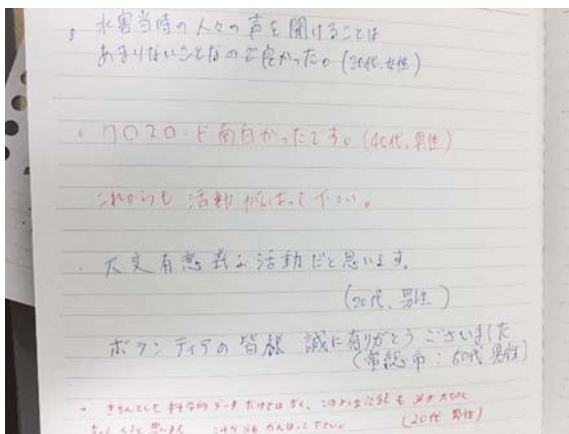 水害当時の人々の声を聞けることは
あまりないことなので良かった。(30代、女性)
クロスロード面白かったです。(40代、男性)
これからも活動がんばって下さい。
大変有意義な活動だと思います。
(20代、男性)
ボランティアの皆様 誠に有りがとうございました
(常総市：60代 男性)
きちんとした科学的データだけではなく、このような記録も
と思います これからもがんばって下さい。 (20代 男性)